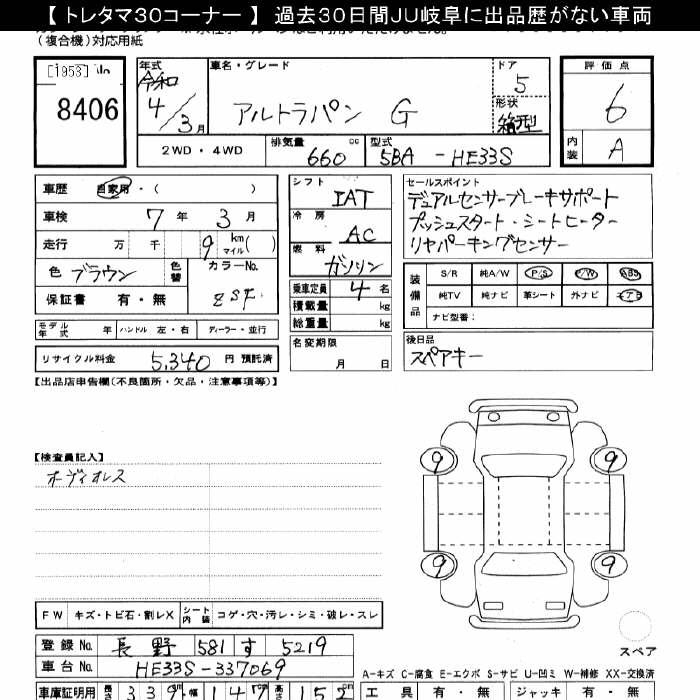 【 トレタマ30コーナー 】 過去30日間JU岐阜に出品歴がない車両
(複合機)対応用紙
[1953]
8406
年式
令和
4/3月
車名・グレード
アルトラパン G
ドア
5
形状
箱型
評価点
6
内装
A
2WD・4WD
排気量
660 cc
型式
5BA - HE33S
車歴 自家用・( )
車検 7年 3月
走行 万 千 9 km マイル ( )
色 ブラウン
色替
カラーNo.
ZSF
保証書 有・無
モデル年式 年 ハンドル 左・右 ディーラー・並行
リサイクル料金 5,340 円 預託済
シフト
IAT
冷房
AC
燃料
ガソリン
乗車定員 4 名
積載量 kg
総重量 kg
名変期限
月 日
セールスポイント
デュアルセンサーブレーキサポート
プッシュスタート・シートヒーター
リヤパーキングセンサー
装備品
S/R 純A/W P/S P/W ABS
純TV 純ナビ 革シート 外ナビ エアB
ナビ型番:
後日品
スペアキー
【出品店申告欄(不良箇所・欠品・注意事項等)】
【検査員記入】
ボディオレス
9 9
9 9
スペア
FW キズ・トビ石・割レX シート内装 コゲ・穴・汚レ・シミ・破レ・スレ
登録No. 長野 581 す 5219
車台No. HE33S-337069
A-キズ C-腐食 E-エクボ S-サビ U-凹ミ W-補修 XX-交換済
車庫証明用 長さ 339 幅 147 高さ 152 cm
工具 有・無 ジャッキ 有・無